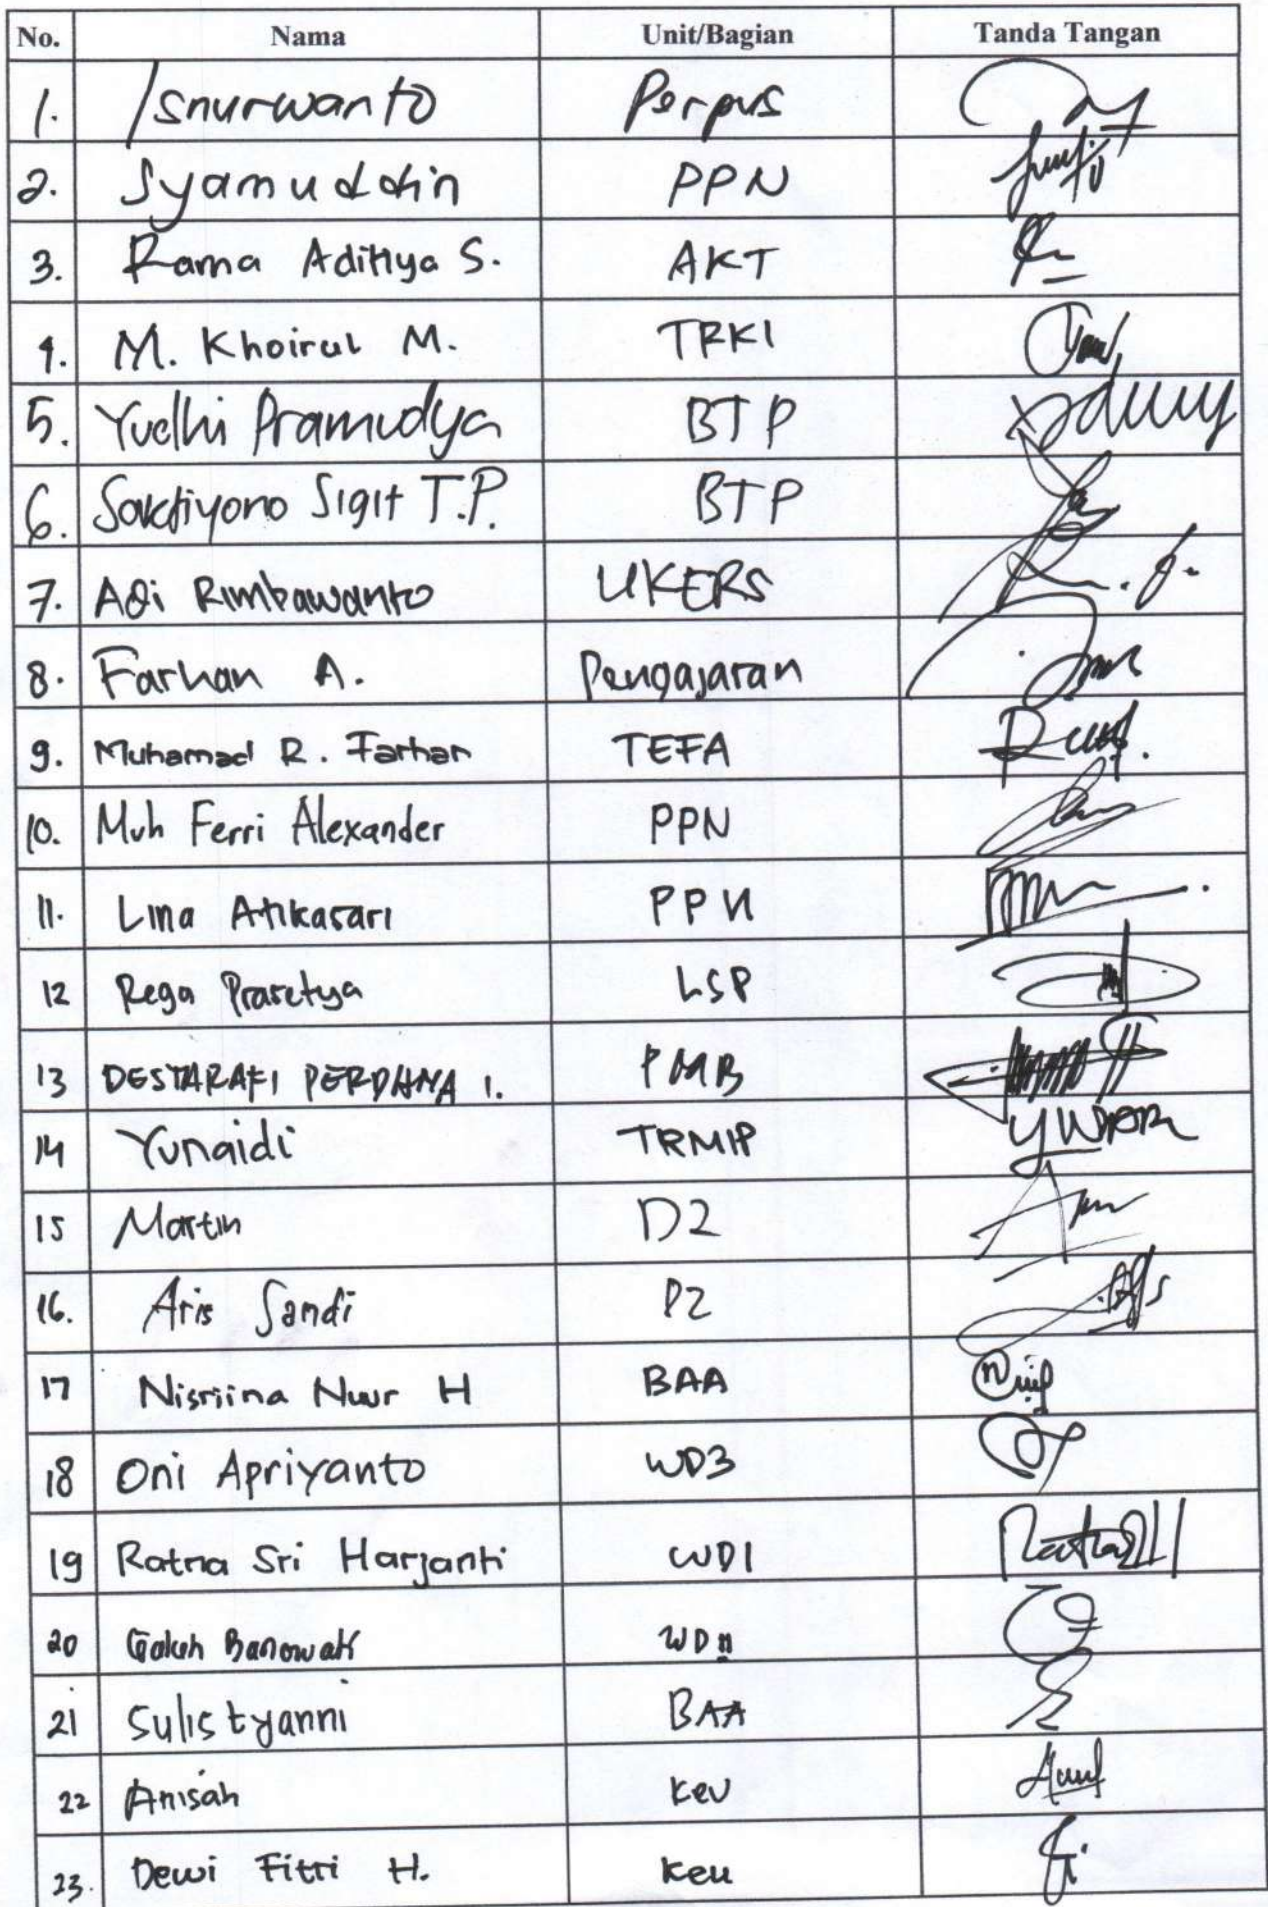 No. Nama Unit/Bagian Tanda Tangan
1. Isnurwanto Perpus
2. Syamuddin PPN
3. Rama Adithya S. AKT
4. M. Khoirul M. TRKI
5. Yudhi Pramudya BTP
6. Sakdiyono Sigit T.P. BTP
7. Adi Rimbawanto UKERS
8. Farhan A. Pengajaran
9. Muhamad R. Farhan TEFA
10. Muh Ferri Alexander PPN
11. Lina Atikasari PPN
12 Rega Prasetya LSP
13 DESTARAFI PERDANA I. PMB
14 Yunaidi TRMIP
15 Martin D2
16. Aris Sandi D2
17 Nisriina Nuur H BAA
18 Oni Apriyanto WD3
19 Ratna Sri Harjanti WD1
20 Galuh Banowati WD II
21 Sulistyanni BAA
22 Anisah Keu
23. Dewi Fitri H. Keu